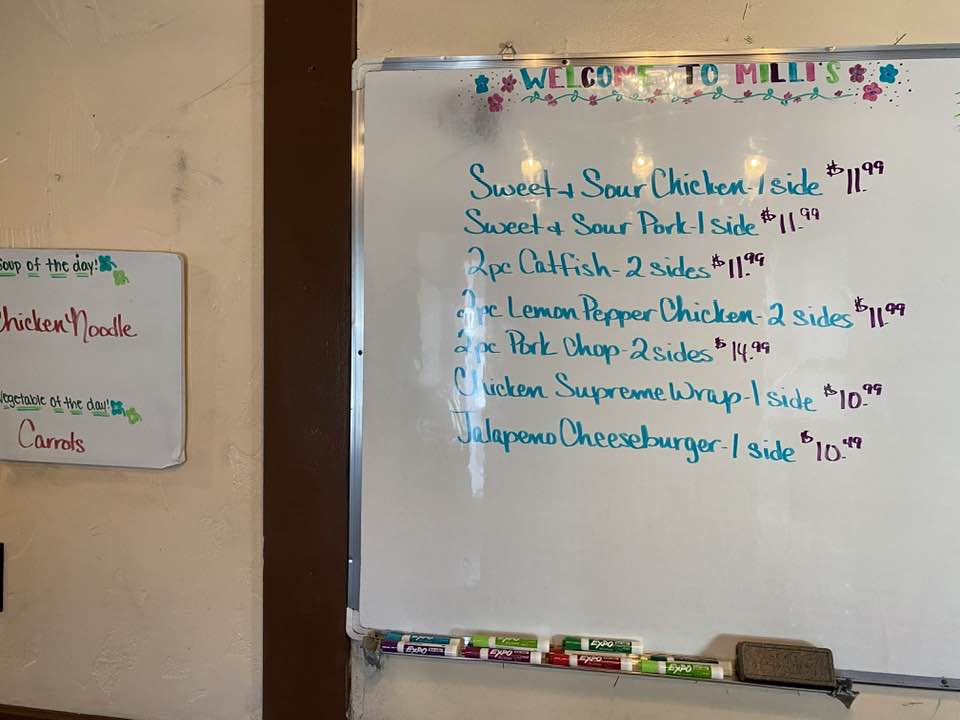 Soup of the day!
Chicken Noodle
Vegetable of the day!
Carrots
WELCOME TO MILLI'S
Sweet & Sour Chicken-1 side $11.99
Sweet & Sour Pork-1 side $11.99
2pc Catfish-2 sides $11.99
2pc Lemon Pepper Chicken-2 sides $11.99
2pc Pork Chop-2 sides $14.99
Chicken Supreme Wrap-1 side $10.99
Jalapeno Cheeseburger-1 side $10.49
EXPO
EXPO
EXPO
EXPO
EXPO